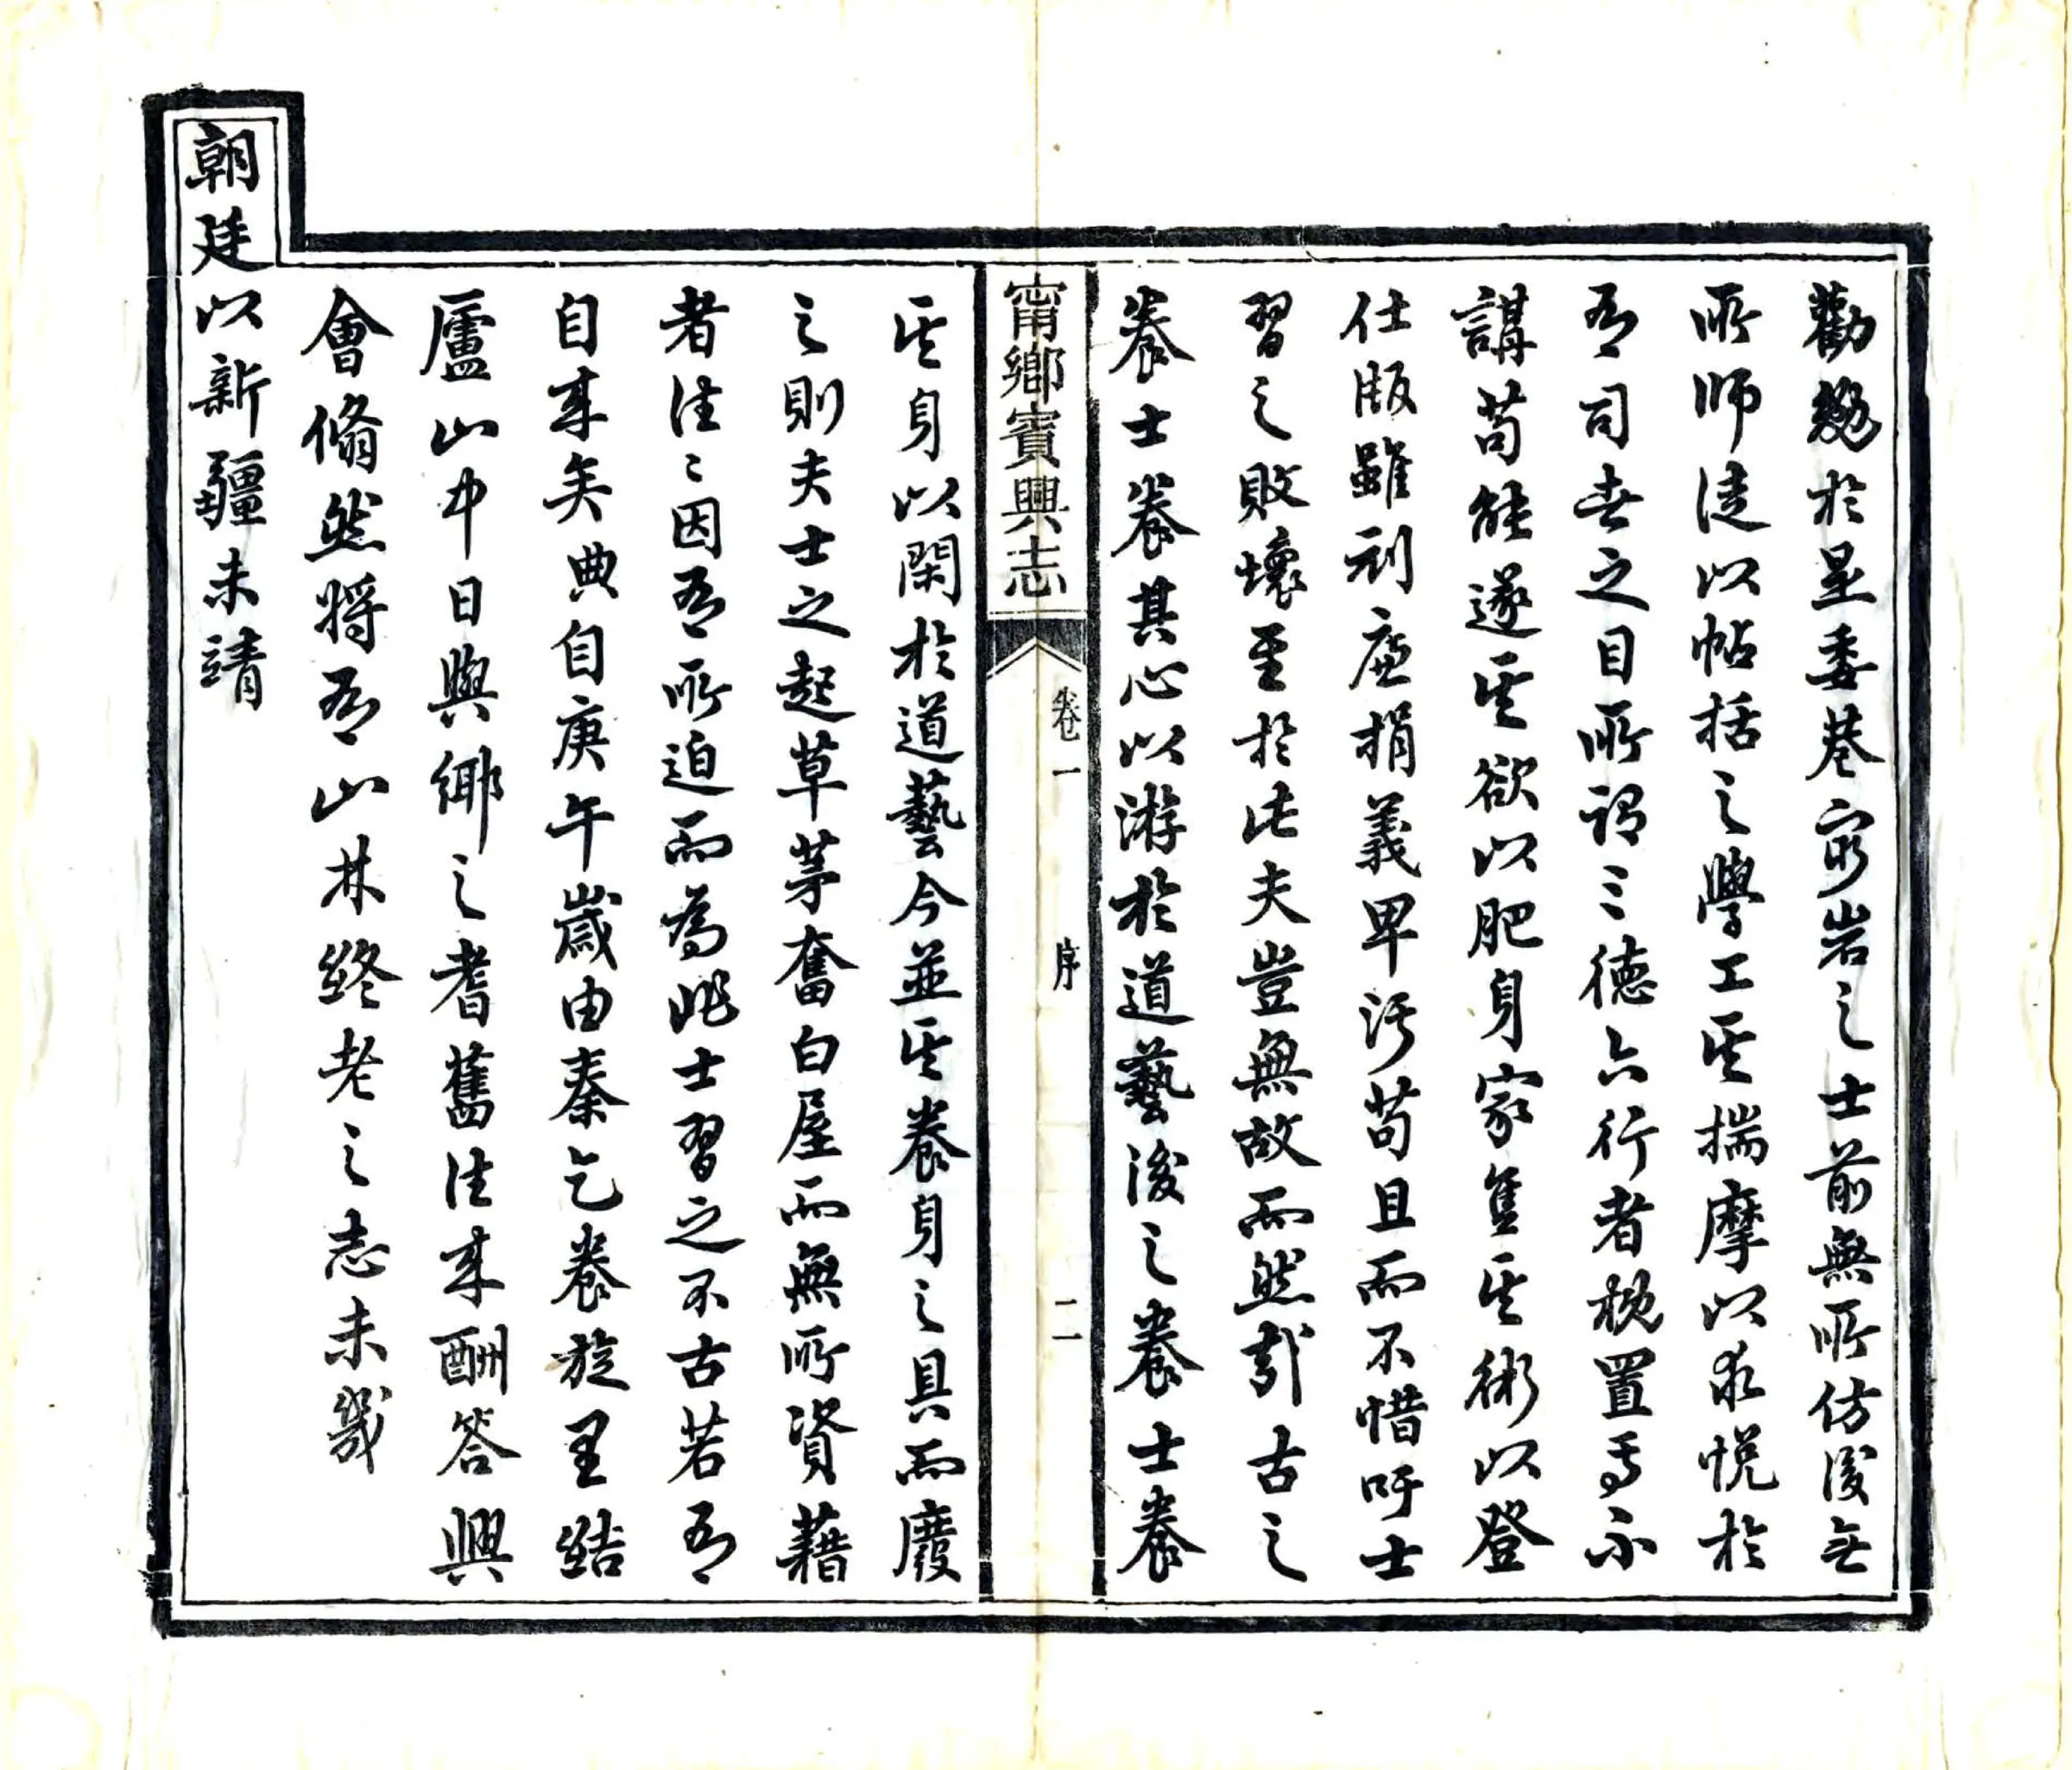 勸懲於是委巷窮岩之士前無所仿後無
所師徒以帖括之學工其揣摩以求悅於
有司世之目所謂三德六行者概置焉不
講苟能遂其欲以肥身家售其術以登
仕版雖刓廉捐義卑污苟且而不惜吁士
習之敗壞至於此夫豈無故而然哉古之
養士養其心以游於道藝後之養士養
其身以閑於道藝今並其養身之具而廢
之則夫士之起草茅奮白屋而無所資藉
者往往因有所迫而為此士習之不古若有
自来矣典自庚午歲由秦乞養旋里結
廬山中日與鄉之耆舊往来酬答興
會翛然將有山林終老之志未幾
朝廷以新疆未靖
甯鄉賓興志
卷一
序
二